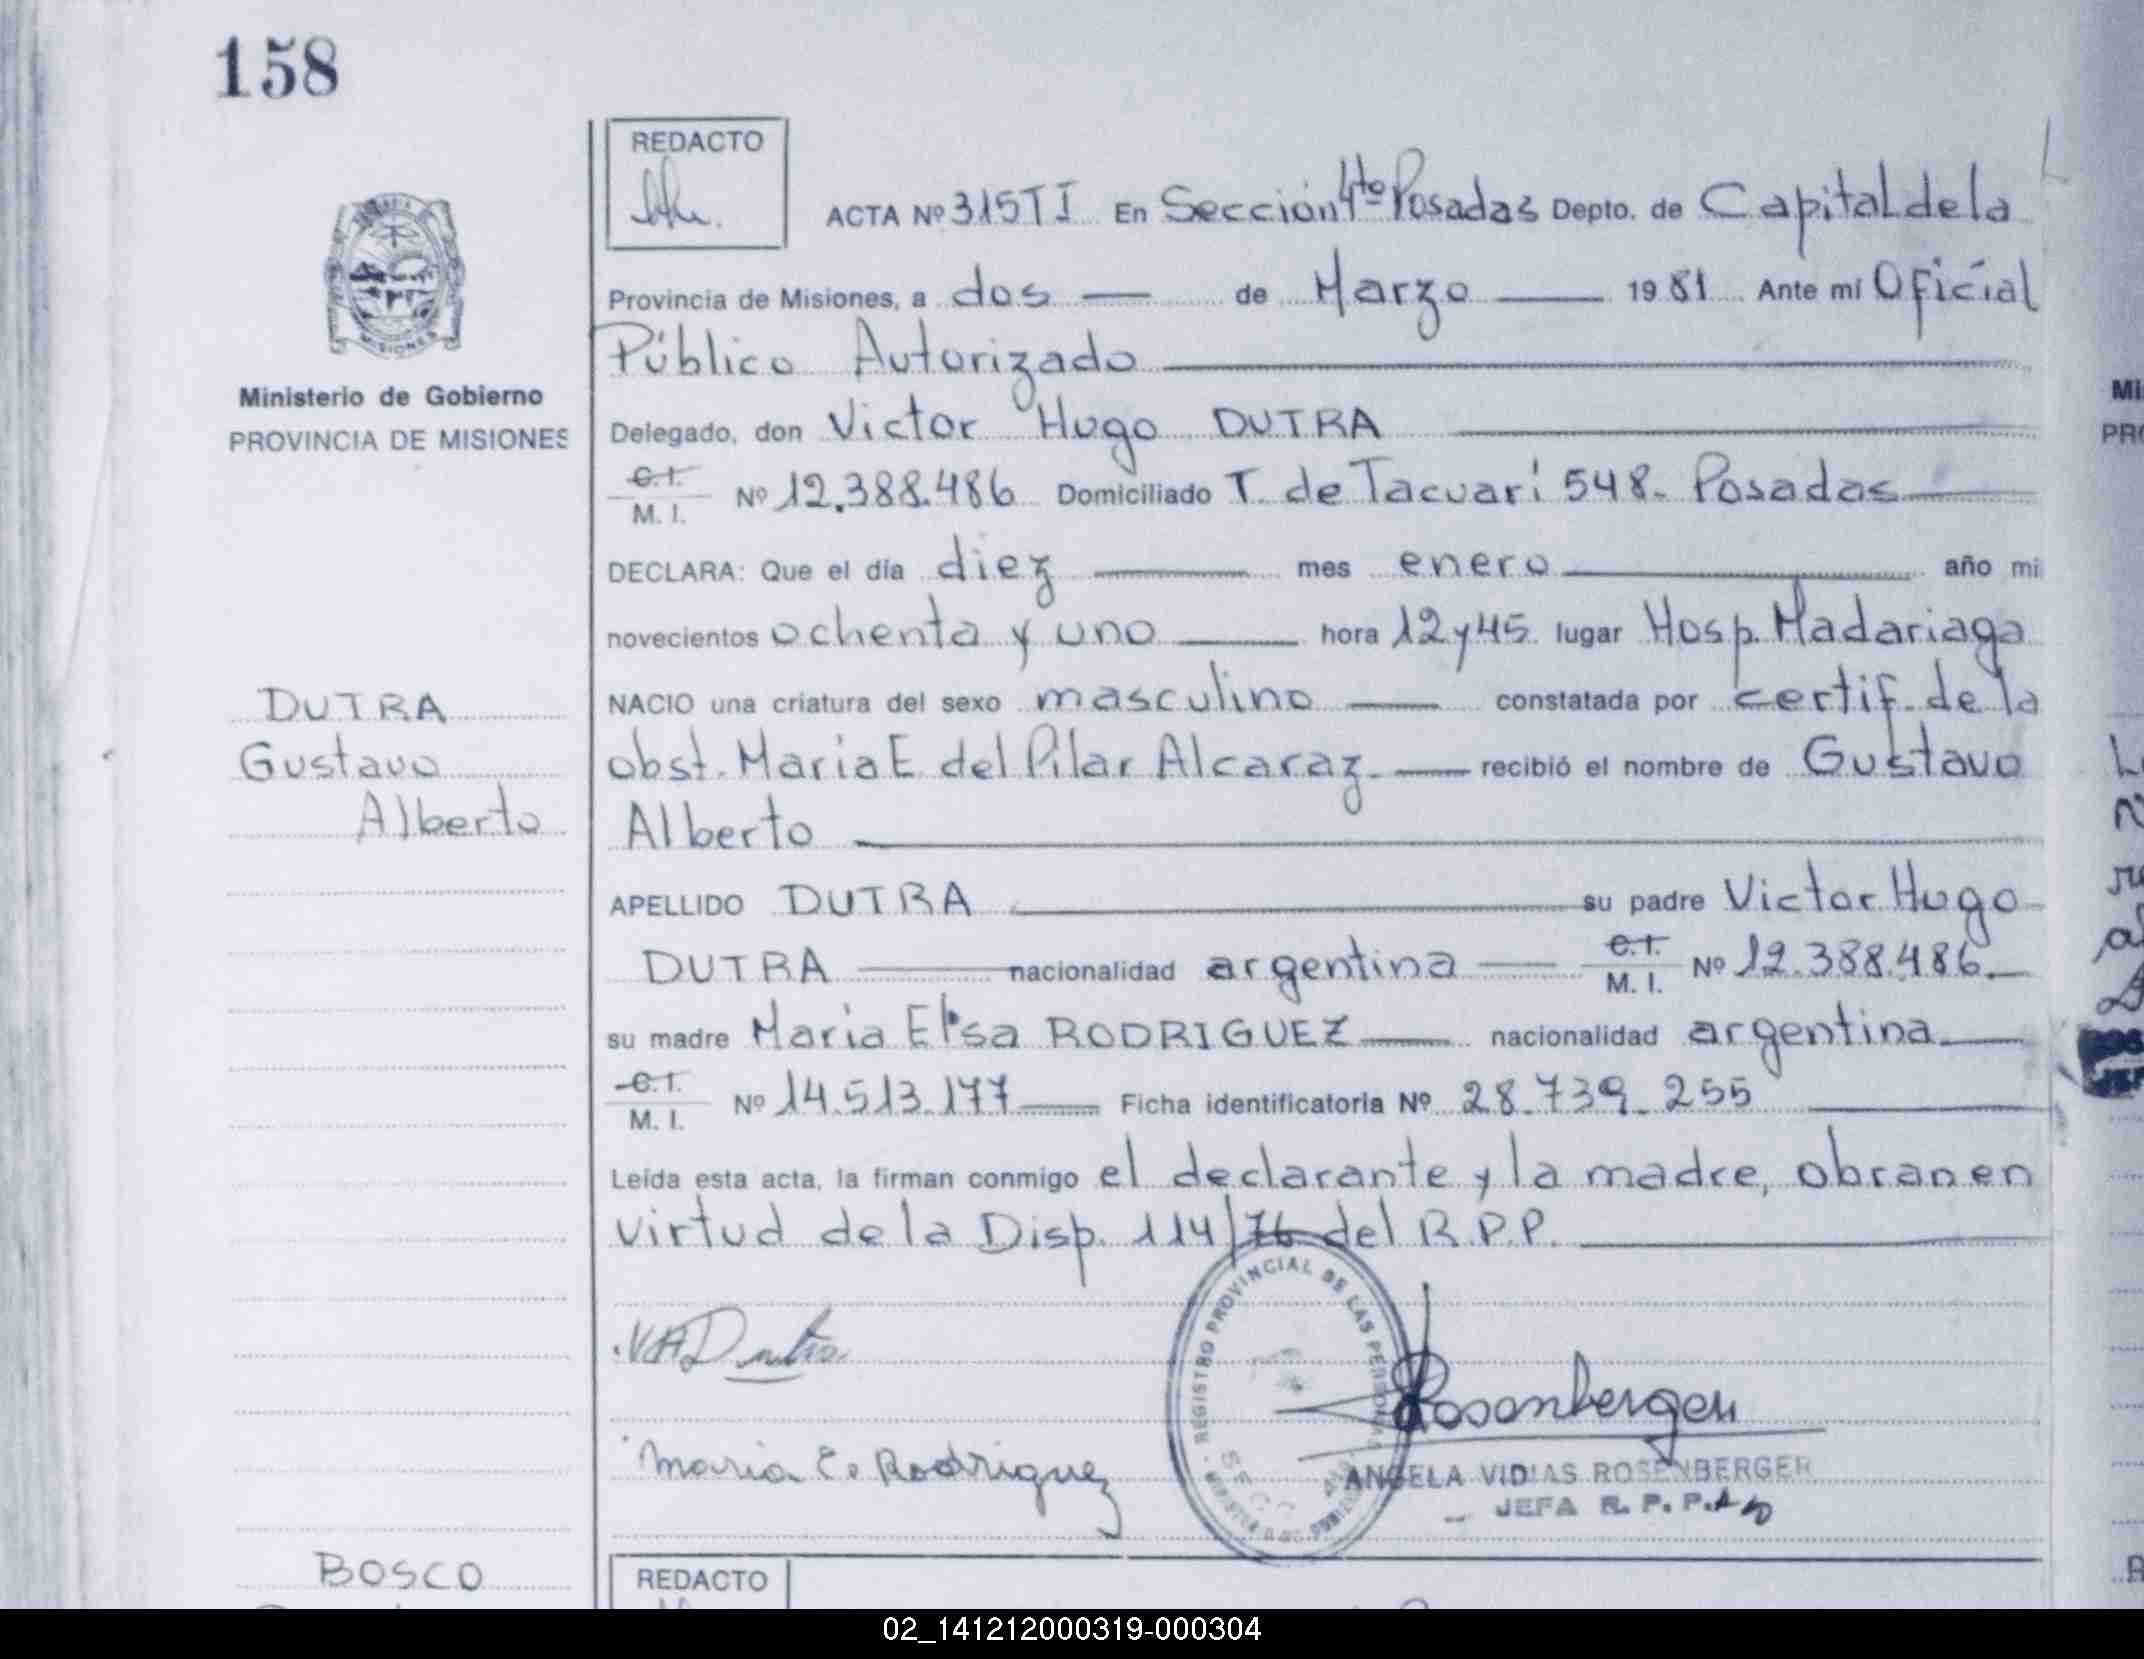 158
REDACTO
ACTA Nº 315TI En Sección 4to Posadas Depto. de Capital de la
Provincia de Misiones, a dos — de Marzo — 1981 Ante mí Oficial
Público Autorizado
Ministerio de Gobierno
PROVINCIA DE MISIONES
Delegado, don Victor Hugo DUTRA
C.I.
M. I. Nº 12.388.486 Domiciliado T. de Tacuarí 548. Posadas
DECLARA: Que el día diez — mes enero — año mi
novecientos ochenta y uno — hora 12 y 45 lugar Hosp. Madariaga
DUTRA
Gustavo
Alberto
NACIO una criatura del sexo masculino — constatada por certif. de la
obst. Maria E. del Pilar Alcaraz — recibió el nombre de Gustavo
Alberto
APELLIDO DUTRA — su padre Victor Hugo
DUTRA — nacionalidad argentina — C.I.
M. I. Nº 12.388.486.
su madre Maria Elsa RODRIGUEZ — nacionalidad argentina
C.I.
M. I. Nº 14.513.177 — Ficha identificatoria Nº 28.739.255
Leída esta acta, la firman conmigo el declarante y la madre, obran en
virtud de la Disp. 114/76 del R.P.P.
VHDutra
Maria E. Rodriguez
REGISTRO PROVINCIAL DE LAS PERSONAS
Rosenberger
ANGELA VIDIAS ROSENBERGER
JEFA R. P. P.
BOSCO
REDACTO
02_141212000319-000304